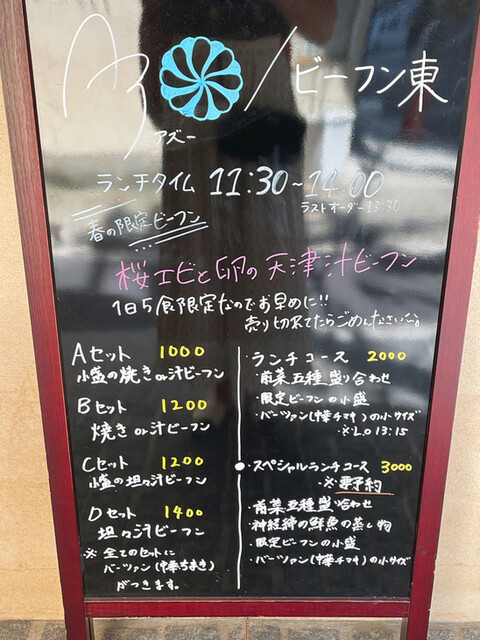 Az / ビーフン東
アズー
ランチタイム 11:30~14:00
ラストオーダー13:30
春の限定ビーフン
桜エビと卵の天津汁ビーフン
1日5食限定なのでお早めに!!
売り切れてたらごめんなさい。
Aセット 1000
小盛の焼きor汁ビーフン
Bセット 1200
焼きor汁ビーフン
Cセット 1200
小盛の坦々汁ビーフン
Dセット 1400
坦々汁ビーフン
※全てのセットに
バーツァン(中華ちまき)
がつきます。
ランチコース 2000
・前菜五種盛り合わせ
・限定ビーフンの小盛
・バーツァン(中華チマキ)の小サイズ
※L.O 13:15
・スペシャルランチコース 3000
※要予約
・前菜五種盛り合わせ
・神経締の鮮魚の蒸し物
・限定ビーフンの小盛
・バーツァン(中華チマキ)の小サイズ